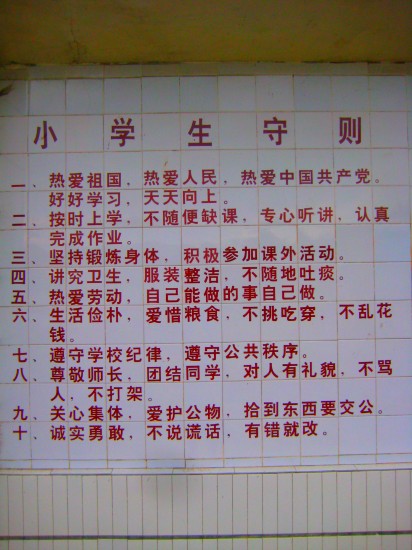 小学生守则
一、热爱祖国，热爱人民，热爱中国共产党。
好好学习，天天向上。
二、按时上学，不随便缺课，专心听讲，认真
完成作业。
三、坚持锻炼身体，积极参加课外活动。
四、讲究卫生，服装整洁，不随地吐痰。
五、热爱劳动，自己能做的事自己做。
六、生活俭朴，爱惜粮食，不挑吃穿，不乱花
钱。
七、遵守学校纪律，遵守公共秩序。
八、尊敬师长，团结同学，对人有礼貌，不骂
人，不打架。
九、关心集体，爱护公物，拾到东西要交公。
十、诚实勇敢，不说谎话，有错就改。